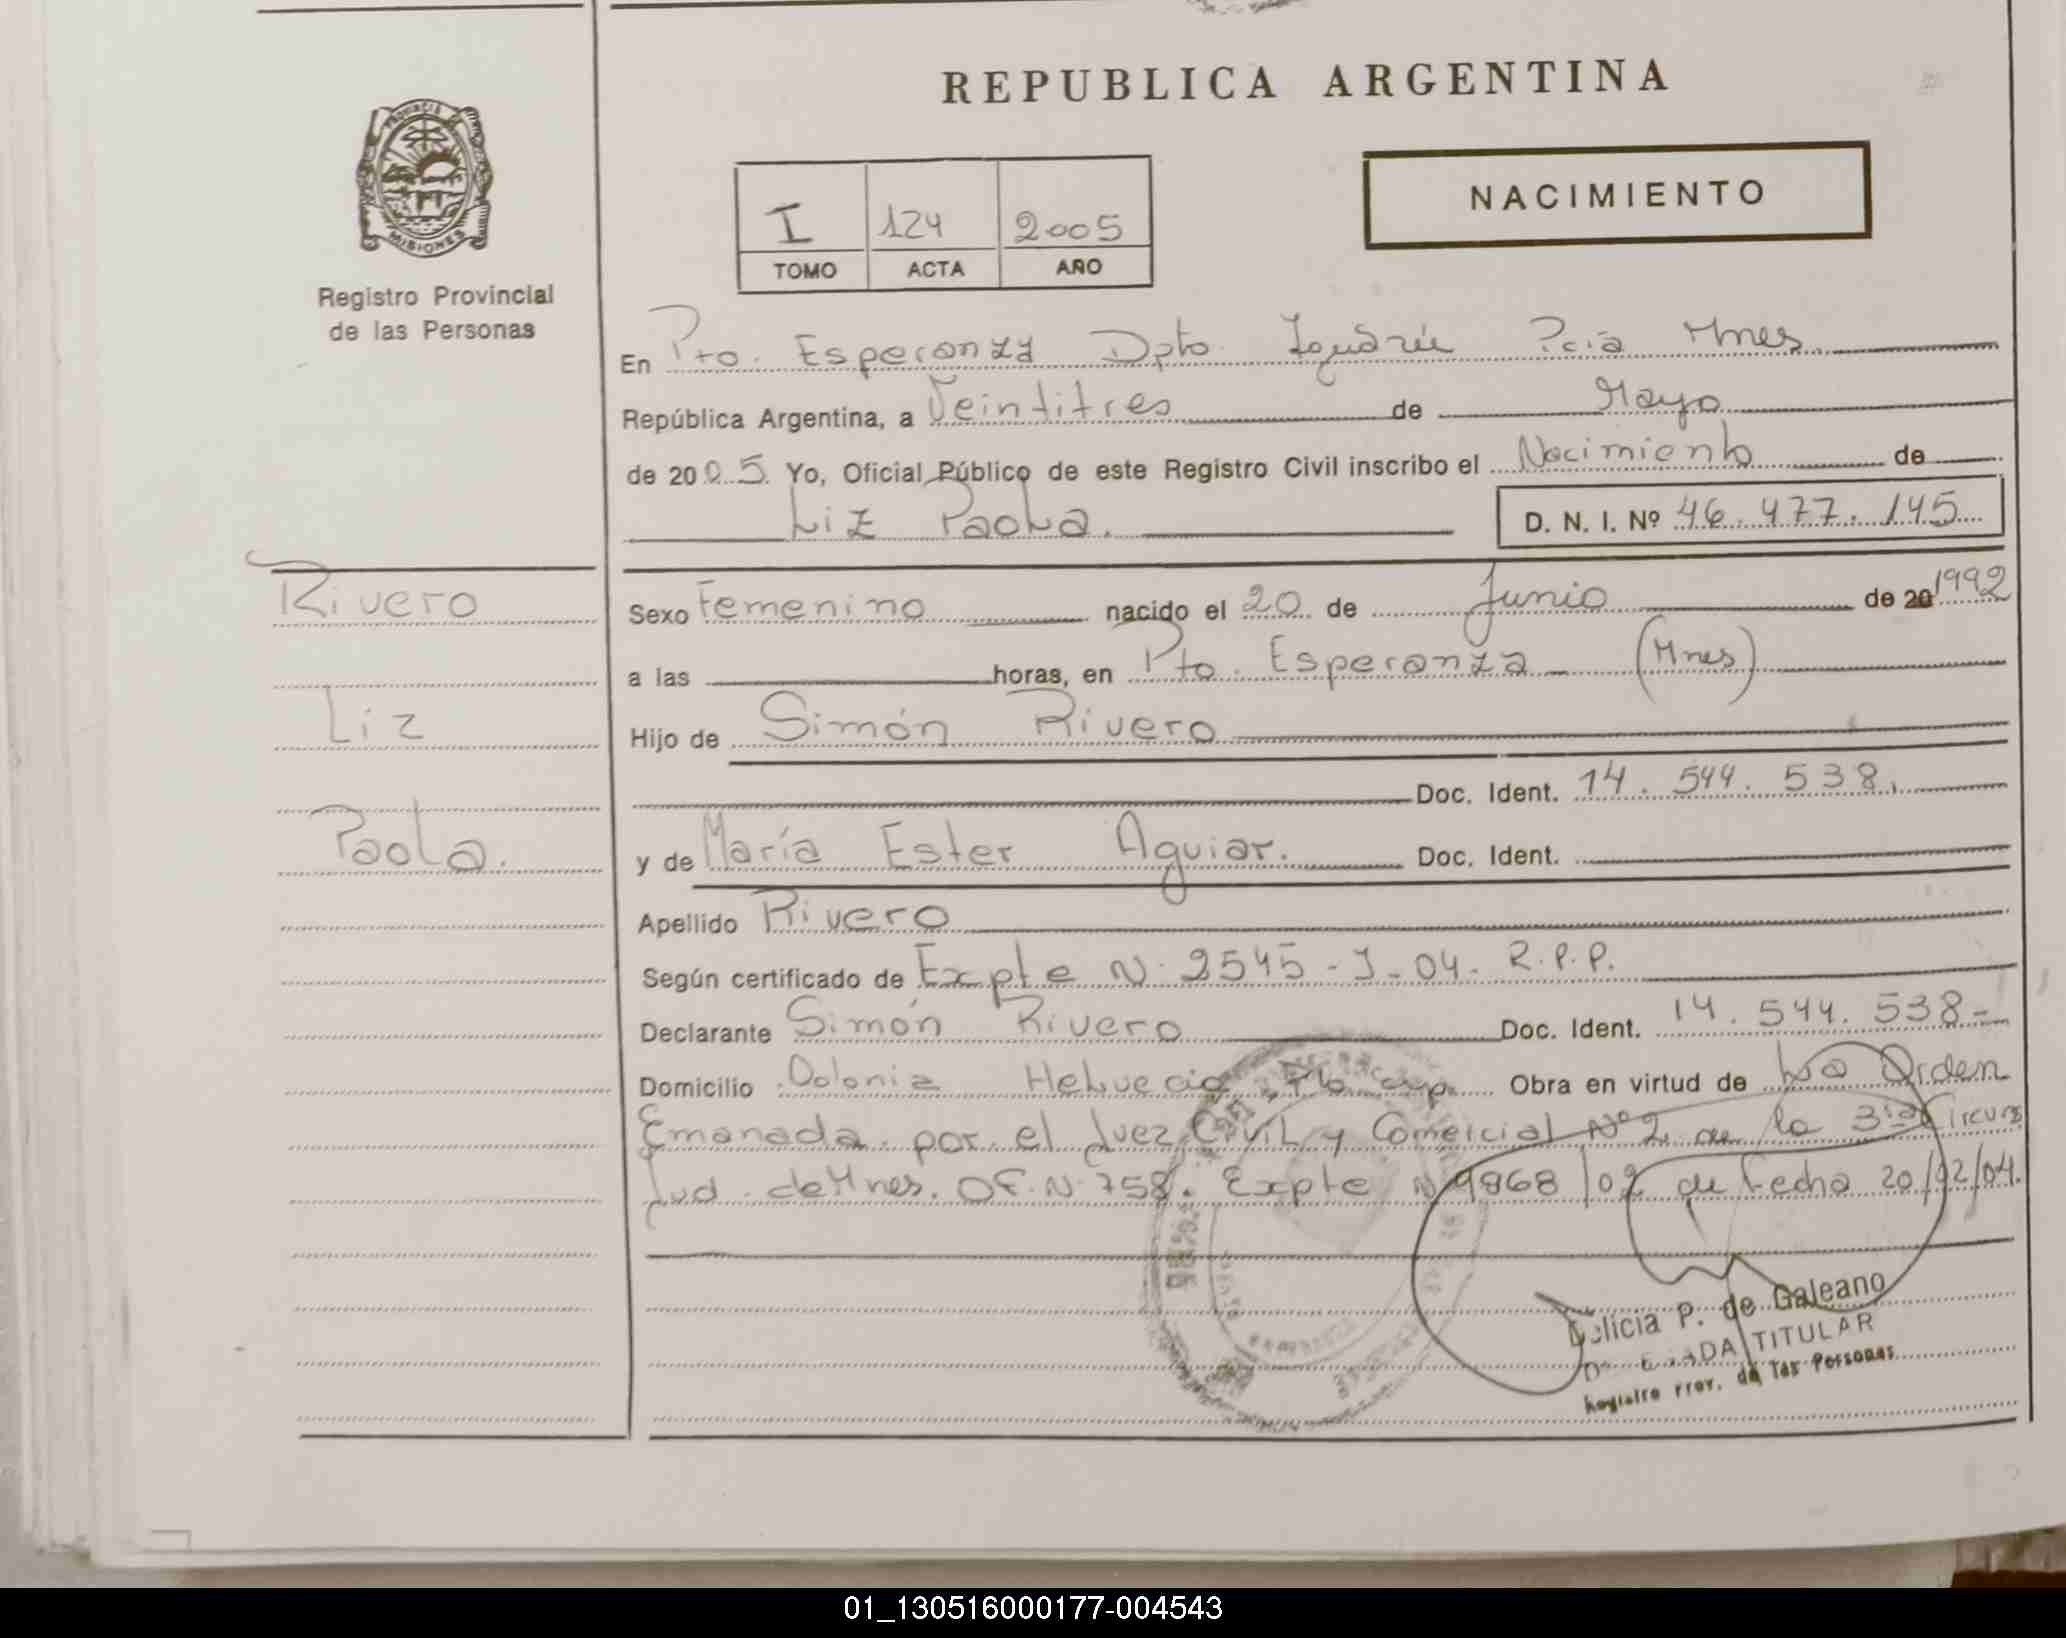 REPUBLICA ARGENTINA
PROVINCIA
MISIONES
Registro Provincial
de las Personas
NACIMIENTO
I 124 2005
TOMO ACTA AÑO
En Pto. Esperanza Dpto. Iguazú Pcia Mnes.
República Argentina, a Veintitres de Mayo
de 2005 Yo, Oficial Público de este Registro Civil inscribo el Nacimiento de
Liz Paola.
D. N. I. Nº 46.477.145
Rivero
Liz
Paola.
Sexo Femenino nacido el 20 de Junio de 20 1992
a las horas, en Pto. Esperanza (Mnes)
Hijo de Simón Rivero
Doc. Ident. 14.544.538.
y de María Ester Aguiar. Doc. Ident.
Apellido Rivero
Según certificado de Expte N. 2545-J-04. R.P.P.
Declarante Simón Rivero Doc. Ident. 14.544.538-
Domicilio Colonia Helvecia Obra en virtud de La Orden
Emanada por el Juez Civil y Comercial Nº 2 de la 3ra Circuns
Jud. de Mnes. OF. N. 758. Expte N 9868/02 de Fecha 20/02/04.
P. de Galeano
TITULAR
de las Personas
01_130516000177-004543